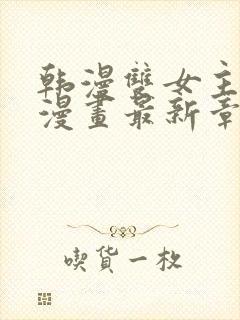 韩漫雙女主
漫畫最新章
喫貨一枚